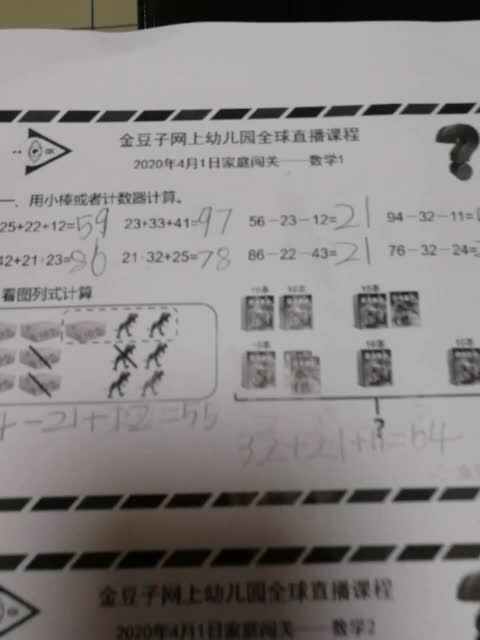 金豆子网上幼儿园全球直播课程
2020年4月1日家庭闯关——数学1
一、用小棒或者计数器计算。
25+22+12=59 23+33+41=97 56-23-12=21 94-32-11=
42+21+23=86 21+32+25=78 86-22-43=21 76-32-24=
看图列式计算
10本 10本
10本
10本 10本
-21+12=55
?
32+21+11=64
金豆子网上幼儿园全球直播课程
2020年4月1日家庭闯关——数学2